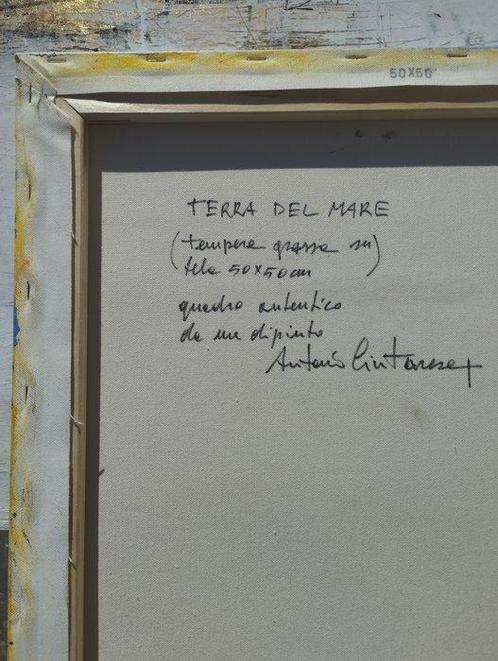 50X50
TERRA DEL MARE
(tempera grassa su)
tela 50x50cm
quadro autentico
da me dipinto
Antonio